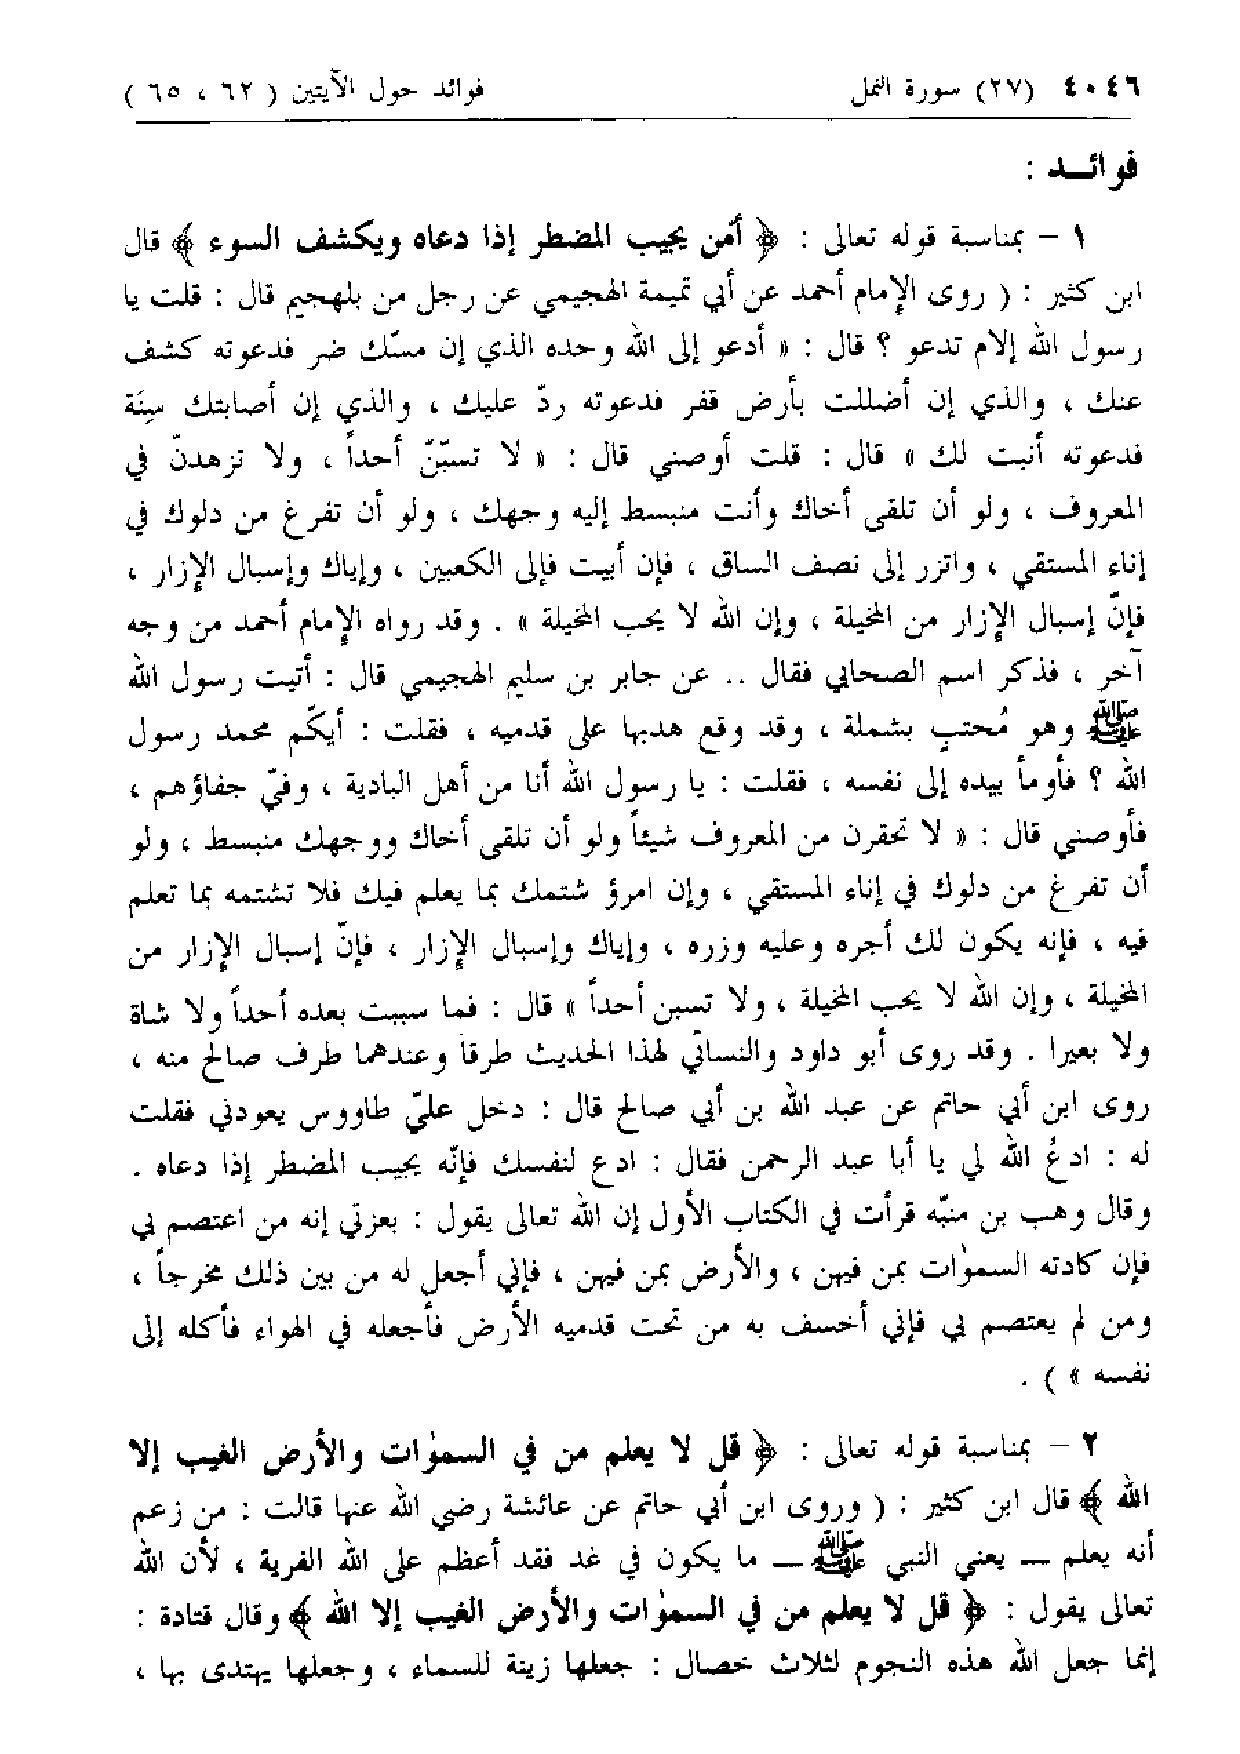 ٤٠٤٦ (٢٧) سورة النمل فوائد حول الآيتين ( ٦٢ ، ٦٥ )
فوائـــد :
١ – بمناسبة قوله تعالى : ﴿ أمّن يجيب المضطر إذا دعاه ويكشف السوء ﴾ قال
ابن كثير : ( روى الإمام أحمد عن أبي تميمة الهجيمي عن رجل من بلهجيم قال : قلت يا
رسول الله إلام تدعو ؟ قال : « أدعو إلى الله وحده الذي إن مسّك ضر فدعوته كشف
عنك ، والذي إن أضللت بأرض قفر فدعوته ردّ عليك ، والذي إن أصابتك سَنِة
فدعوته أنبت لك » قال : قلت أوصني قال : « لا تسبّنّ أحداً ، ولا تزهدنّ في
المعروف ، ولو أن تلقى أخاك وأنت منبسط إليه وجهك ، ولو أن تفرغ من دلوك في
إناء المستقي ، واتزر إلى نصف الساق ، فإن أبيت فإلى الكعبين ، وإياك وإسبال الإزار ،
فإنّ إسبال الإزار من المخيلة ، وإن الله لا يحب المخيلة » . وقد رواه الإمام أحمد من وجه
آخر ، فذكر اسم الصحابي فقال .. عن جابر بن سليم الهجيمي قال : أتيت رسول الله
ﷺ وهو مُحتبٍ بشملة ، وقد وقع هدبها على قدميه ، فقلت : أيكّم محمد رسول
الله ؟ فأومأ بيده إلى نفسه ، فقلت : يا رسول الله أنا من أهل البادية ، وفيّ جفاؤهم ،
فأوصني قال : « لا تحقرن من المعروف شيئاً ولو أن تلقى أخاك ووجهك منبسط ، ولو
أن تفرغ من دلوك في إناء المستقي ، وإن امرؤ شتمك بما يعلم فيك فلا تشتمه بما تعلم
فيه ، فإنه يكون لك أجره وعليه وزره ، وإياك وإسبال الإزار ، فإنّ إسبال الإزار من
المخيلة ، وإن الله لا يحب المخيلة ، ولا تسبن أحداً » قال : فما سببت بعده أحداً ولا شاة
ولا بعيرا . وقد روى أبو داود والنسائي لهذا الحديث طرقاً وعندهما طرف صالح منه ،
روى ابن أبي حاتم عن عبد الله بن أبي صالح قال : دخل عليّ طاووس يعودني فقلت
له : ادعُ الله لي يا أبا عبد الرحمن فقال : ادع لنفسك فإنّه يجيب المضطر إذا دعاه .
وقال وهب بن منبّه قرأت في الكتاب الأول إن الله تعالى يقول : بعزتي إنه من اعتصم بي
فإن كادته السمٰوات بمن فيهن ، والأرض بمن فيهن ، فإني أجعل له من بين ذلك مخرجاً ،
ومن لم يعتصم بي فإني أخسف به من تحت قدميه الأرض فأجعله في الهواء فأكله إلى
نفسه » ) .
٢ – بمناسبة قوله تعالى : ﴿ قل لا يعلم من في السمٰوات والأرض الغيب إلا
الله ﴾ قال ابن كثير : ( وروى ابن أبي حاتم عن عائشة رضي الله عنها قالت : من زعم
أنه يعلم — يعني النبي ﷺ — ما يكون في غد فقد أعظم على الله الفرية ، لأن الله
تعالى يقول : ﴿ قل لا يعلم من في السمٰوات والأرض الغيب إلا الله ﴾ وقال قتادة :
إنما جعل الله هذه النجوم لثلاث خصال : جعلها زينة للسماء ، وجعلها يهتدى بها ،